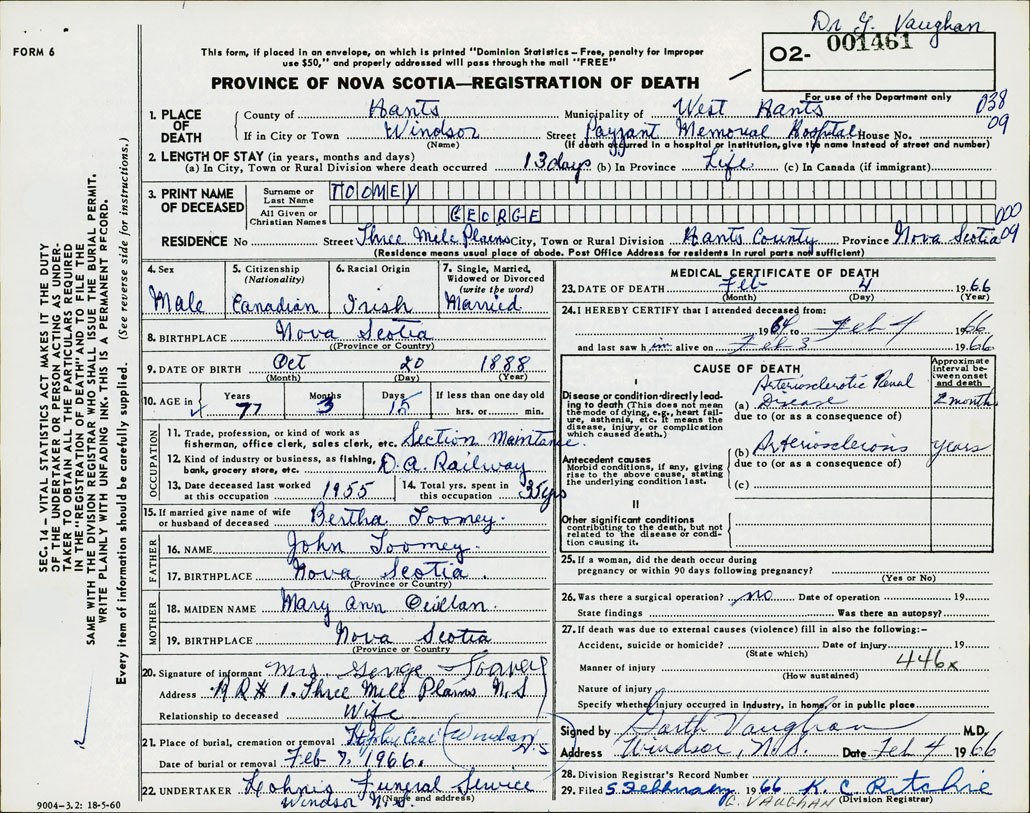 Dr G. Vaughan
FORM 6
This form, if placed in an envelope, on which is printed "Dominion Statistics – Free, penalty for improper
use $50," and properly addressed will pass through the mail "FREE"
O2- 001461
PROVINCE OF NOVA SCOTIA—REGISTRATION OF DEATH
For use of the Department only
038
09
1. PLACE OF DEATH
County of Hants Municipality of West Hants
If in City or Town Windsor Street Payzant Memorial Hospital House No.
(Name) (If death occurred in a hospital or institution, give the name instead of street and number)
2. LENGTH OF STAY (in years, months and days)
(a) In City, Town or Rural Division where death occurred 13 days (b) In Province Life (c) In Canada (if immigrant)
3. PRINT NAME OF DECEASED
Surname or Last Name TOOMEY
All Given or Christian Names GEORGE
000
09
RESIDENCE No Street Three Mile Plains City, Town or Rural Division Hants County Province Nova Scotia
(Residence means usual place of abode. Post Office Address for residents in rural parts not sufficient)
4. Sex Male
5. Citizenship (Nationality) Canadian
6. Racial Origin Irish
7. Single, Married, Widowed or Divorced (write the word) Married
8. BIRTHPLACE Nova Scotia
(Province or Country)
9. DATE OF BIRTH Oct 20 1888
(Month) (Day) (Year)
10. AGE in Years 77 Months 3 Days 15 If less than one day old hrs. or min.
OCCUPATION
11. Trade, profession, or kind of work as
fisherman, office clerk, sales clerk, etc. Section Maintance
12. Kind of industry or business, as fishing,
bank, grocery store, etc. D.A. Railway
13. Date deceased last worked
at this occupation 1955
14. Total yrs. spent in
this occupation 35 yrs
15. If married give name of wife
or husband of deceased Bertha Toomey.
FATHER
16. NAME John Toomey.
17. BIRTHPLACE Nova Scotia.
(Province or Country)
MOTHER
18. MAIDEN NAME Mary Ann
19. BIRTHPLACE Nova Scotia
(Province or Country)
20. Signature of informant Mrs George Toomey
Address R R # 1. Three Mile Plains N.S
Relationship to deceased Wife
21. Place of burial, cremation or removal (Windsor N.S)
Date of burial or removal Feb 7, 1966.
22. UNDERTAKER Funeral Service
Windsor N.S. (Name and address)
MEDICAL CERTIFICATE OF DEATH
23. DATE OF DEATH Feb 4 1966
(Month) (Day) (Year)
24. I HEREBY CERTIFY that I attended deceased from:
1964 to Feb 4 1966
and last saw h im alive on Feb 3 1966
CAUSE OF DEATH
Approximate interval between onset and death
I
Disease or condition directly leading to death (This does not mean the mode of dying, e.g., heart failure, asthenia, etc. It means the disease, injury, or complication which caused death.)
(a) Arteriosclerotic Renal Disease 2 months
due to (or as a consequence of)
Antecedent causes
Morbid conditions, if any, giving rise to the above cause, stating the underlying condition last.
(b) Arteriosclerosis years
due to (or as a consequence of)
(c)
II
Other significant conditions
contributing to the death, but not related to the disease or condition causing it.
25. If a woman, did the death occur during
pregnancy or within 90 days following pregnancy?
(Yes or No)
26. Was there a surgical operation? no Date of operation 19
State findings Was there an autopsy?
27. If death was due to external causes (violence) fill in also the following:–
Accident, suicide or homicide? Date of injury 19
(State which)
446x
Manner of injury
(How sustained)
Nature of injury
Specify whether injury occurred in Industry, in home, or in public place
Signed by Garth Vaughan M.D.
Address Windsor, N.S. Date Feb 4 1966
28. Division Registrar's Record Number
29. Filed 5 February 1966 K. C. Ritchie
G. VAUGHAN (Division Registrar)
SEC. 14 – VITAL STATISTICS ACT MAKES IT THE DUTY
OF THE UNDERTAKER OR PERSON ACTING AS UNDERTAKER
TO OBTAIN ALL THE PARTICULARS REQUIRED
IN THE "REGISTRATION OF DEATH" AND TO FILE THE
SAME WITH THE DIVISION REGISTRAR WHO SHALL ISSUE THE BURIAL PERMIT.
WRITE PLAINLY WITH UNFADING INK. THIS IS A PERMANENT RECORD.
Every item of information should be carefully supplied. (See reverse side for instructions.)
9004-3.2: 18-5-60